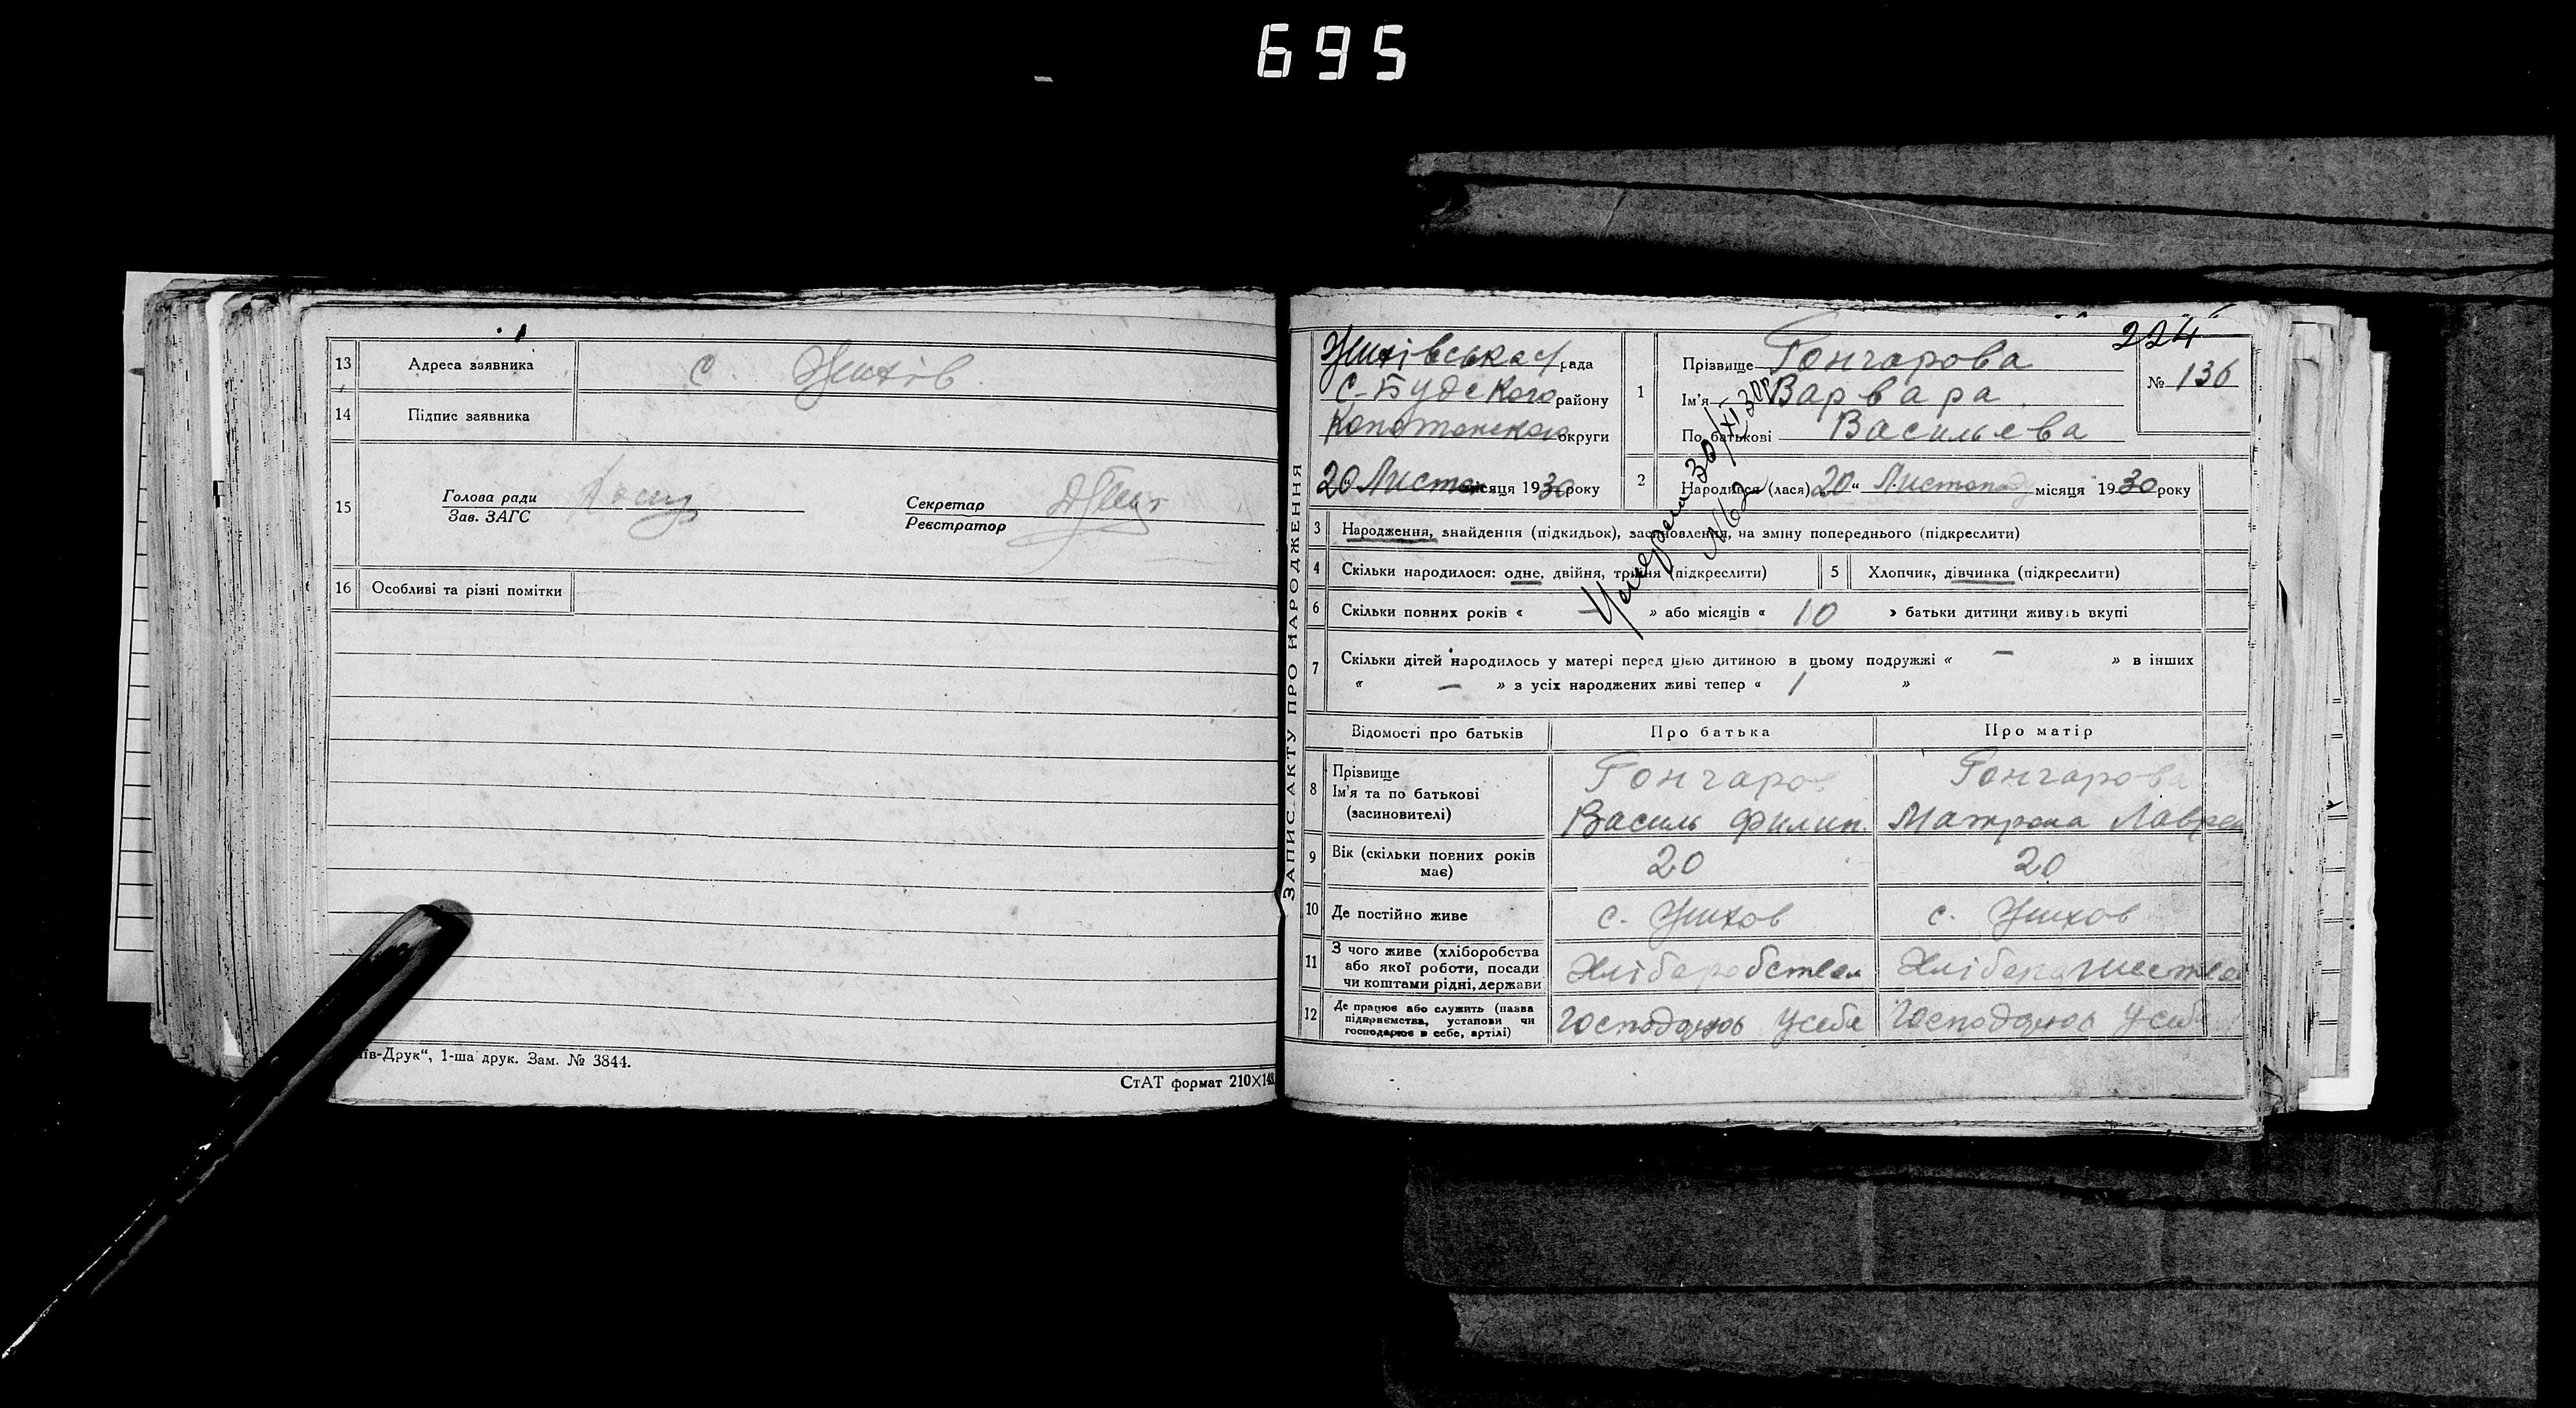 695
13 Адреса заявника с. Жихів
14 Підпис заявника
15 Голова ради
Зав. ЗАГС
Секретар
Реєстратор
16 Особливі та різні помітки
ів-Друк“, 1-ша друк. Зам. № 3844.
СтАТ формат 210×148
ЗАПИС АКТУ ПРО НАРОДЖЕННЯ
224
Жихівська с/рада
С-Будского району
Конотопского округи
20 Листоп місяця 1930 року
1 Прізвище Гончарова
Ім'я Варвара
По батькові Васильева
№ 136
2 Народився (лася) „20“ Листопад місяця 1930 року
30/XI 30р
№ 62
3 Народження, знайдення (підкидьок), засиновлення, на зміну попереднього (підкреслити)
4 Скільки народилося: одне, двійня, трийня (підкреслити) 5 Хлопчик, дівчинка (підкреслити)
6 Скільки повних років « — » або місяців « 10 » батьки дитини живуть вкупі
7 Скільки дітей народилось у матері перед цією дитиною в цьому подружжі « — » в інших
« — » з усіх народжених живі тепер « 1 »
Відомості про батьків Про батька Про матір
8 Прізвище Гончаров Гончарова
Ім'я та по батькові
(засиновителі) Василь Филип. Матрона Лаврен
9 Вік (скільки повних років
має) 20 20
10 Де постійно живе с. Жихов с. Жихов
11 З чого живе (хліборобства
або якої роботи, посади
чи коштами рідні, держави Хліборобством
12 Де працює або служить (назва
підприємства, установи чи
господарює в себе, артілі) Господарює у себе Господарює у себе